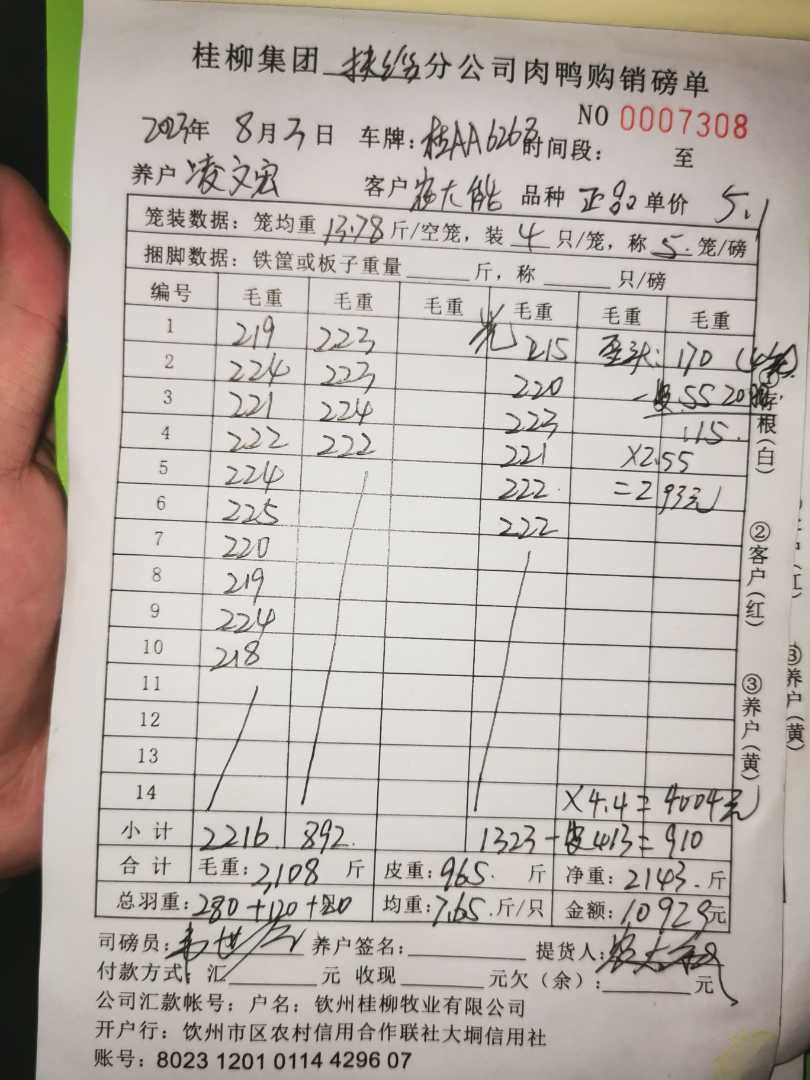 桂柳集团扶绥分公司肉鸭购销磅单
NO 0007308
2023年 8月3日 车牌: 桂AA626 时间段: 至
养户 凌文宏 客户 大能 品种 正品 单价 5.1
笼装数据: 笼均重 13.78 斤/空笼, 装 4 只/笼, 称 5. 笼/磅
捆脚数据: 铁筐或板子重量 斤, 称 只/磅
编号 毛重 毛重 毛重 毛重 毛重 毛重
1 219 223 215 170
2 224 223 220 55 20
3 221 224 223 115.
4 222 222 221 ×2.55
5 224 222 =293元
6 225 222
7 220
8 219
9 224
10 218
11
12
13
14 ×4.4=4004元
小计 2216 892. 1323-皮413=910
合计 毛重: 3108 斤 皮重: 965. 斤 净重: 2143. 斤
总羽重: 280+120+20 均重: 7.65. 斤/只 金额: 10929元
司磅员: 养户签名: 提货人:
付款方式: 汇 元 收现 元欠(余): 元
公司汇款帐号: 户名: 钦州桂柳牧业有限公司
开户行: 饮州市区农村信用合作联社大垌信用社
账号: 8023 1201 0114 4296 07
①存根(白)
②客户(红)
③养户(黄)
③养户(黄)